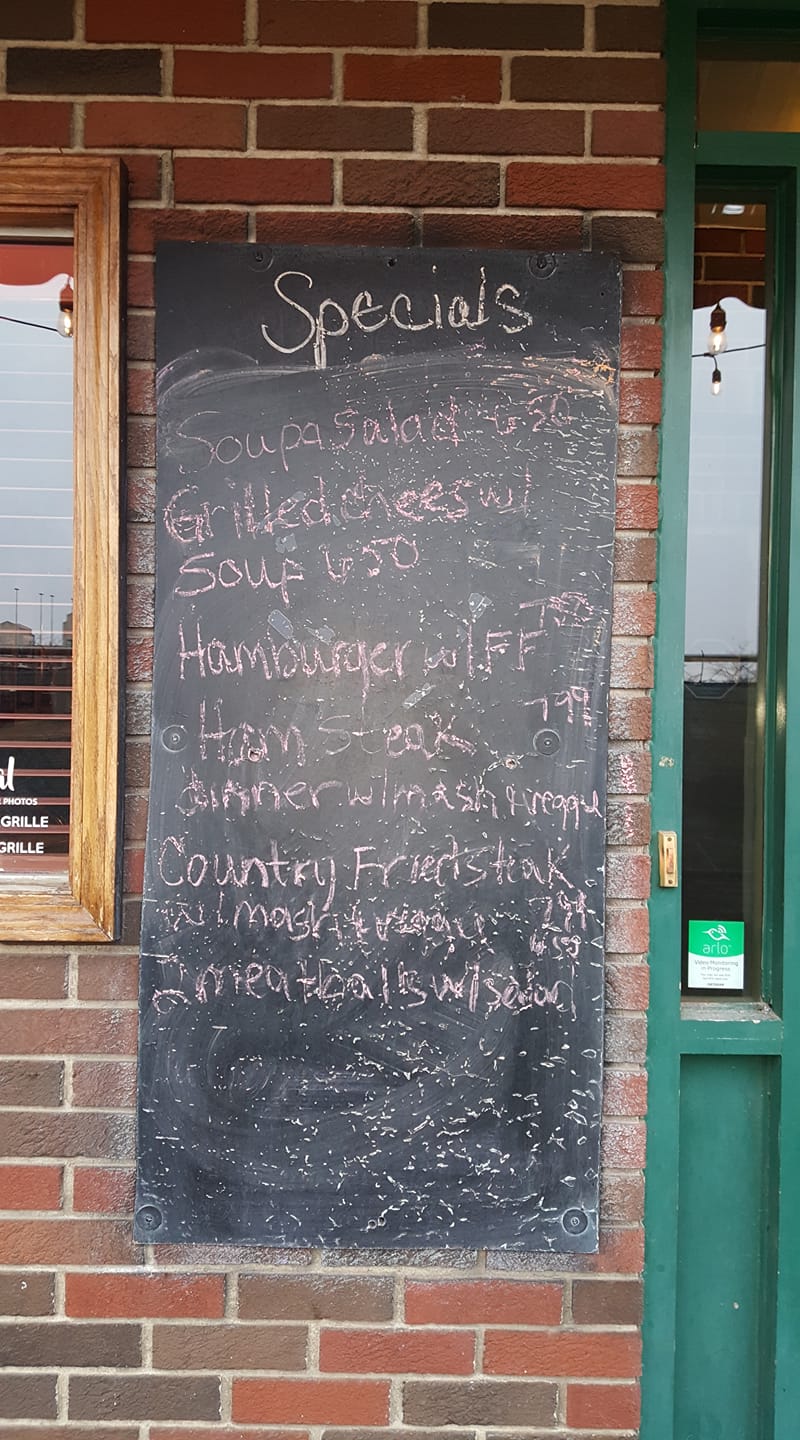 Specials
Soup a Salad 6 50
Grilled chees w/
Soup 6 50
Hamburger w/ FF
7.99
Ham Steak
dinner w/ mash + veggie
Country Fried steak
w/ mash + veggie 7.99
6.50
2 meatballs w/ salad
PHOTOS
GRILLE
GRILLE
arlo
Video Monitoring
in Progress